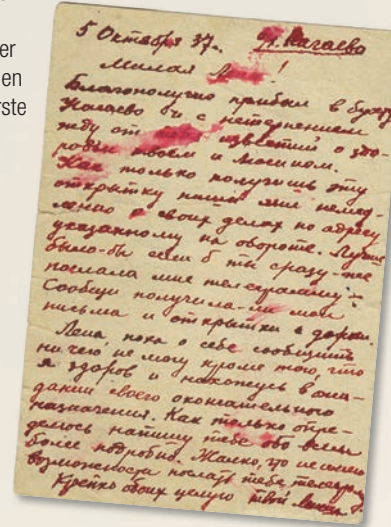 er
en
rste
5 Октября 37г. б. Нагаево
Милая !
Благополучно прибыл в бухту
Нагаево и с нетерпением
жду от известий о здо-
ровьи твоем и
Как только получишь эту
открытку пиши мне немед-
ленно о своих делах по адресу
указанному на обороте. Лучше
было-бы если б ты сразу-же
послала мне телеграмму.
Сообщи получила-ли мои
письма и открытки с дороги.
Лена, пока о себе сообщить
ничего не могу кроме того, что
я здоров и нахожусь в ожи-
дании своего окончательного
назначения. Как только опре-
делюсь напишу тебе обо всем
более подробно. Жалко, что не имею
возможности послать тебе телеграмму
Крепко обоих целую твой